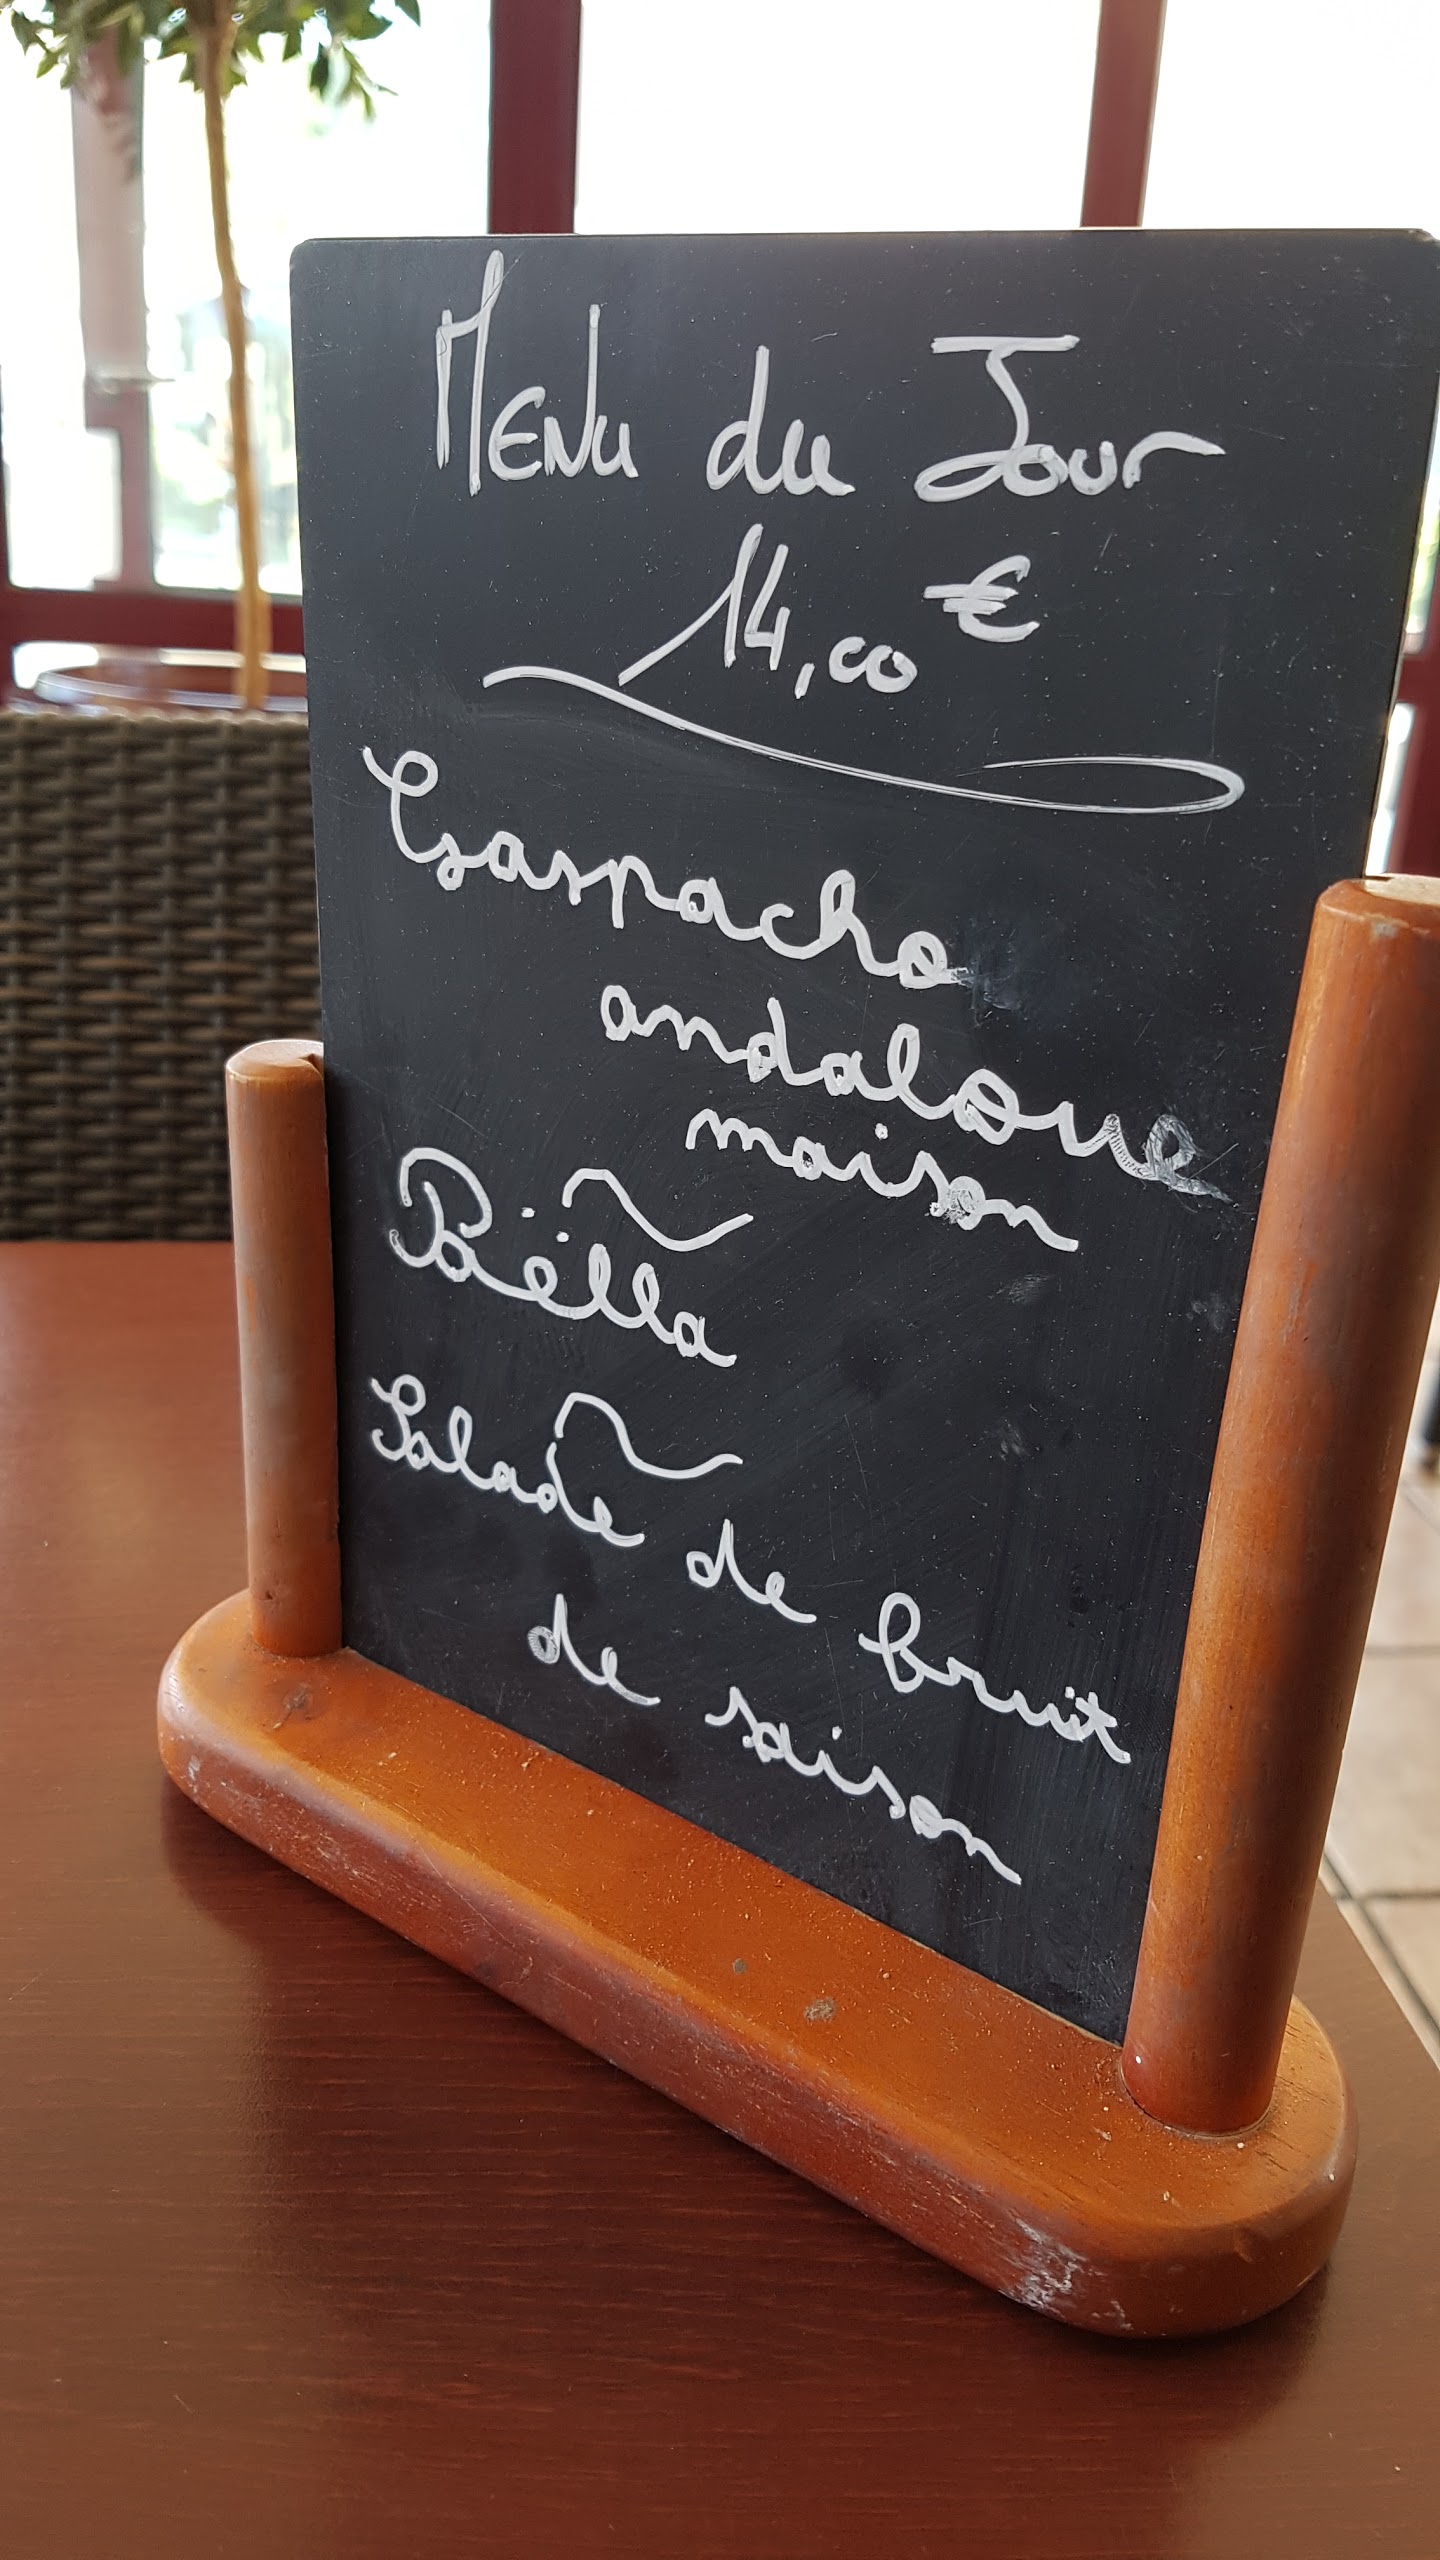 Menu du Jour
14,00 €
Gaspacho
andaloue
maison
Paëlla
Salade de fruit
de saison